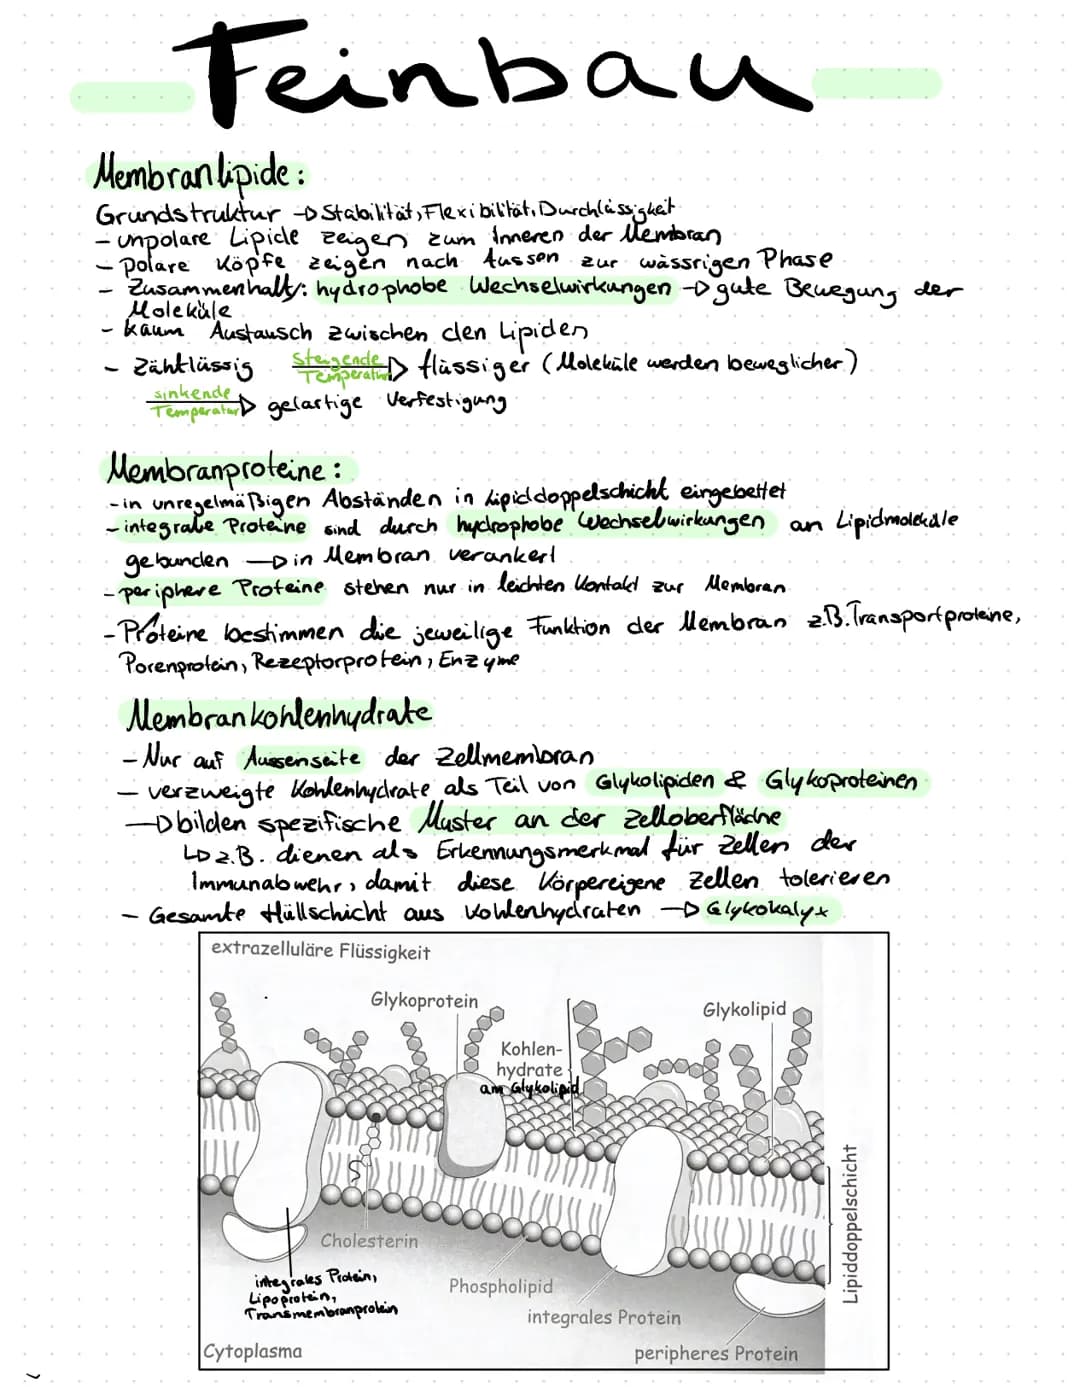 Feinbau
Membranlipide:
Grundstruktur → Stabilität, Flexibilität, Durchlässigkeit
- unpolare Lipide zeigen zum Inneren der Membran
- polare Köpfe zeigen nach Aussen zur wässrigen Phase
- Zusammenhalt: hydrophobe Wechselwirkungen → gute Bewegung der
Moleküle
- kaum Austausch zwischen den Lipiden
- Zähflüssig steigende Temperatur → flüssiger (Moleküle werden beweglicher)
sinkende Temperatur → gelartige Verfestigung
Membranproteine:
- in unregelmäßigen Abständen in Lipiddoppelschicht eingebettet
- integrale Proteine sind durch hydrophobe Wechselwirkungen an Lipidmoleküle
gebunden → in Membran verankert
- periphere Proteine stehen nur in leichten Kontakt zur Membran
- Proteine bestimmen die jeweilige Funktion der Membran z.B. Transportproteine,
Porenprotein, Rezeptorprotein, Enzyme
Membrankohlenhydrate
- Nur auf Aussenseite der Zellmembran
- verzweigte Kohlenhydrate als Teil von Glykolipiden & Glykoproteinen
→ bilden spezifische Muster an der Zelloberfläche
↳ z.B. dienen als Erkennungsmerkmal für Zellen der
Immunabwehr, damit diese Körpereigene Zellen tolerieren
- Gesamte Hüllschicht aus Kohlenhydraten → Glykokalyx
extrazelluläre Flüssigkeit
Glykoprotein
Glykolipid
Kohlen-
hydrate
am Glykolipid
Lipiddoppelschicht
Cholesterin
integrales Protein,
Lipoprotein,
Transmembranprotein
Phospholipid
integrales Protein
Cytoplasma
peripheres Protein